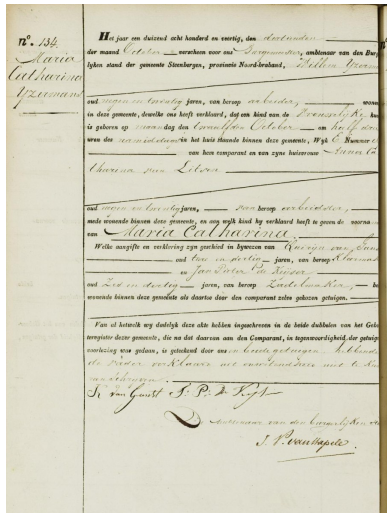 N.º 134.
Maria
Catharina
Yzermans
Het jaar een duizend acht honderd en veertig, den dertienden
der maand October verscheen voor ons Burgemeester, ambtenaar van den Bur
lyken stand der gemeente Steenbergen, provincie Noord-braband, Willem Yzerm
oud negen en twintig jaren, van beroep arbeider, wonen
in deze gemeente, dewelke ons heeft verklaard, dat een kind van de Vrouwelijke kun
is geboren op maandag den twaalfden October om half drie
uren des namiddags in het huis staande binnen deze gemeente, Wyk E Nummer
van hem comparant en van zyne huisvrouw Anna Ca
tharina van
oud negen en twintig jaren, van beroep arbeidster,
mede wonende binnen deze gemeente, en aan welk kind hy verklaard heeft te geven de voornamen
van Maria Catharina.
Welke aangifte en verklaring zyn geschied in bywezen van van
oud twee en dertig jaren, van beroep
en Jan Pieter de
oud Zes en dertig jaren, van beroep Zadelmaker, bei
wonende binnen deze gemeente als daartoe door den comparant zelve gekozen getuigen.
Van al hetwelk wy dadelyk deze akte hebben ingeschreven in de beide dubbelen van het Gebo
teregister dezer gemeente, die na dat daarvan aan den Comparant, in tegenwoordigheid, der getuigen
voorlezing was gedaan, is geteekend door ons en beide getuigen hebbende
de Vader verklaard uit niet te kun
nen schrijven.
van Ginst J. P. de
De Ambtenaar van den burgerlijken sta
J. P. van Kapele.